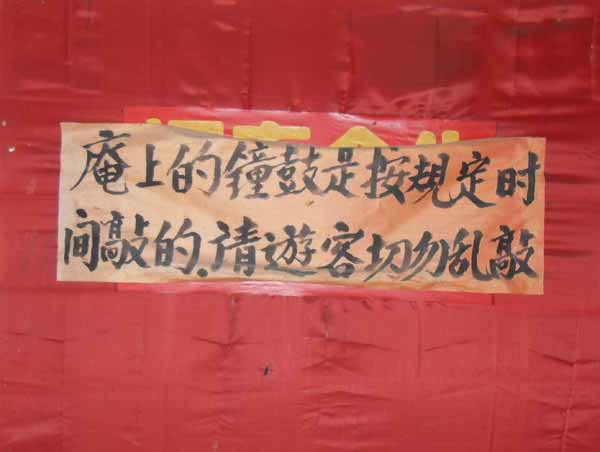 庵上的鐘鼓是按規定时
间敲的.请遊客切勿乱敲